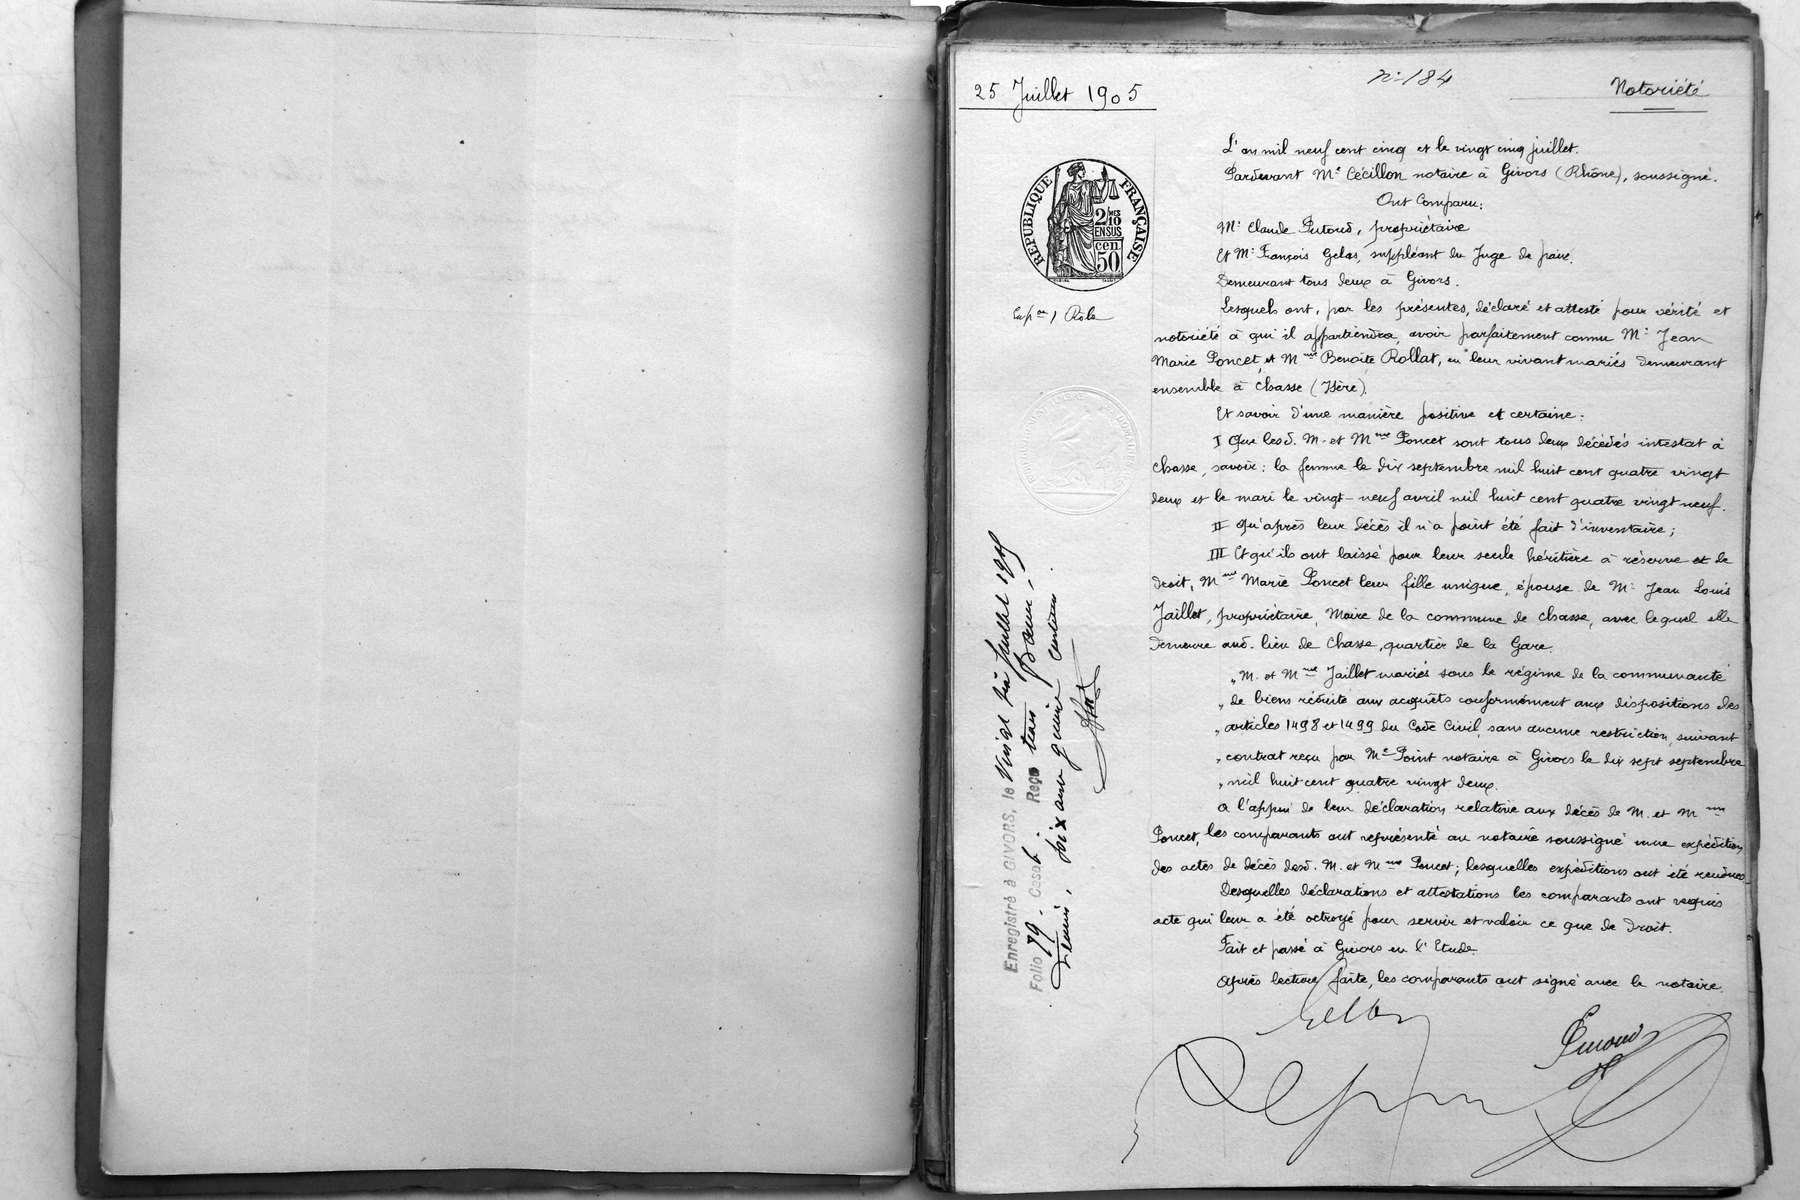 25 Juillet 1905
N° 184
Notoriété
L'an mil neuf cent cinq et le vingt cinq juillet.
Pardevant Me Cécillon notaire à Givors (Rhône), soussigné.
Ont Comparu:
Mr Claude Putoud, propriétaire
Et Mr François Gelas, suppléant du Juge de paix.
Demeurant tous deux à Givors.
Lesquels ont, par les présentes, déclaré et attesté pour vérité et
notoriété à qui il appartiendra, avoir parfaitement connu Mr Jean
Marie Poncet, et Mme Benoite Rollat, en leur vivant mariés demeurant
ensemble à Chasse (Isère).
Et savoir d'une manière positive et certaine:
I Que lesd. M. et Mme Poncet sont tous deux décédés intestat à
Chasse, savoir: la femme le dix septembre mil huit cent quatre vingt
deux et le mari le vingt-neuf avril mil huit cent quatre vingt neuf.
II Qu'après leur décès il n'a point été fait d'inventaire;
III Et qu'ils ont laissé pour leur seule héritière à réserve et de
droit, Mme Marie Poncet leur fille unique, épouse de Mr Jean Louis
Jaillet, propriétaire, Maire de la commune de Chasse, avec lequel elle
demeure aud. lieu de Chasse, quartier de la Gare.
„ M. et Mme Jaillet mariés sous le régime de la communauté
„ de biens réduite aux acquêts conformément aux dispositions des
„ articles 1498 et 1499 du Code Civil, sans aucune restriction, suivant
„ contrat reçu par Me Point notaire à Givors le dix sept septembre
„ mil huit cent quatre vingt deux.
A l'appui de leur déclaration relative aux décès de M. et Mme
Poncet, les comparants ont représenté au notaire soussigné une expédition
des actes de décès desd. M. et Mme Poncet; lesquelles expéditions ont été rendues.
Desquelles déclarations et attestations les comparants ont requis
acte qui leur a été octroyé pour servir et valoir ce que de droit.
Fait et passé à Givors en l'Etude.
Après lecture faite, les comparants ont signé avec le notaire.
RÉPUBLIQUE FRANÇAISE
2/10 MES
EN SUS
50 cen
Expon 1 Role
Enregistré à GIVORS, le Vingt six Juillet 1905
Folio 79. Case 6. Reçu trois francs,
Décimes, soixante quinze centimes.